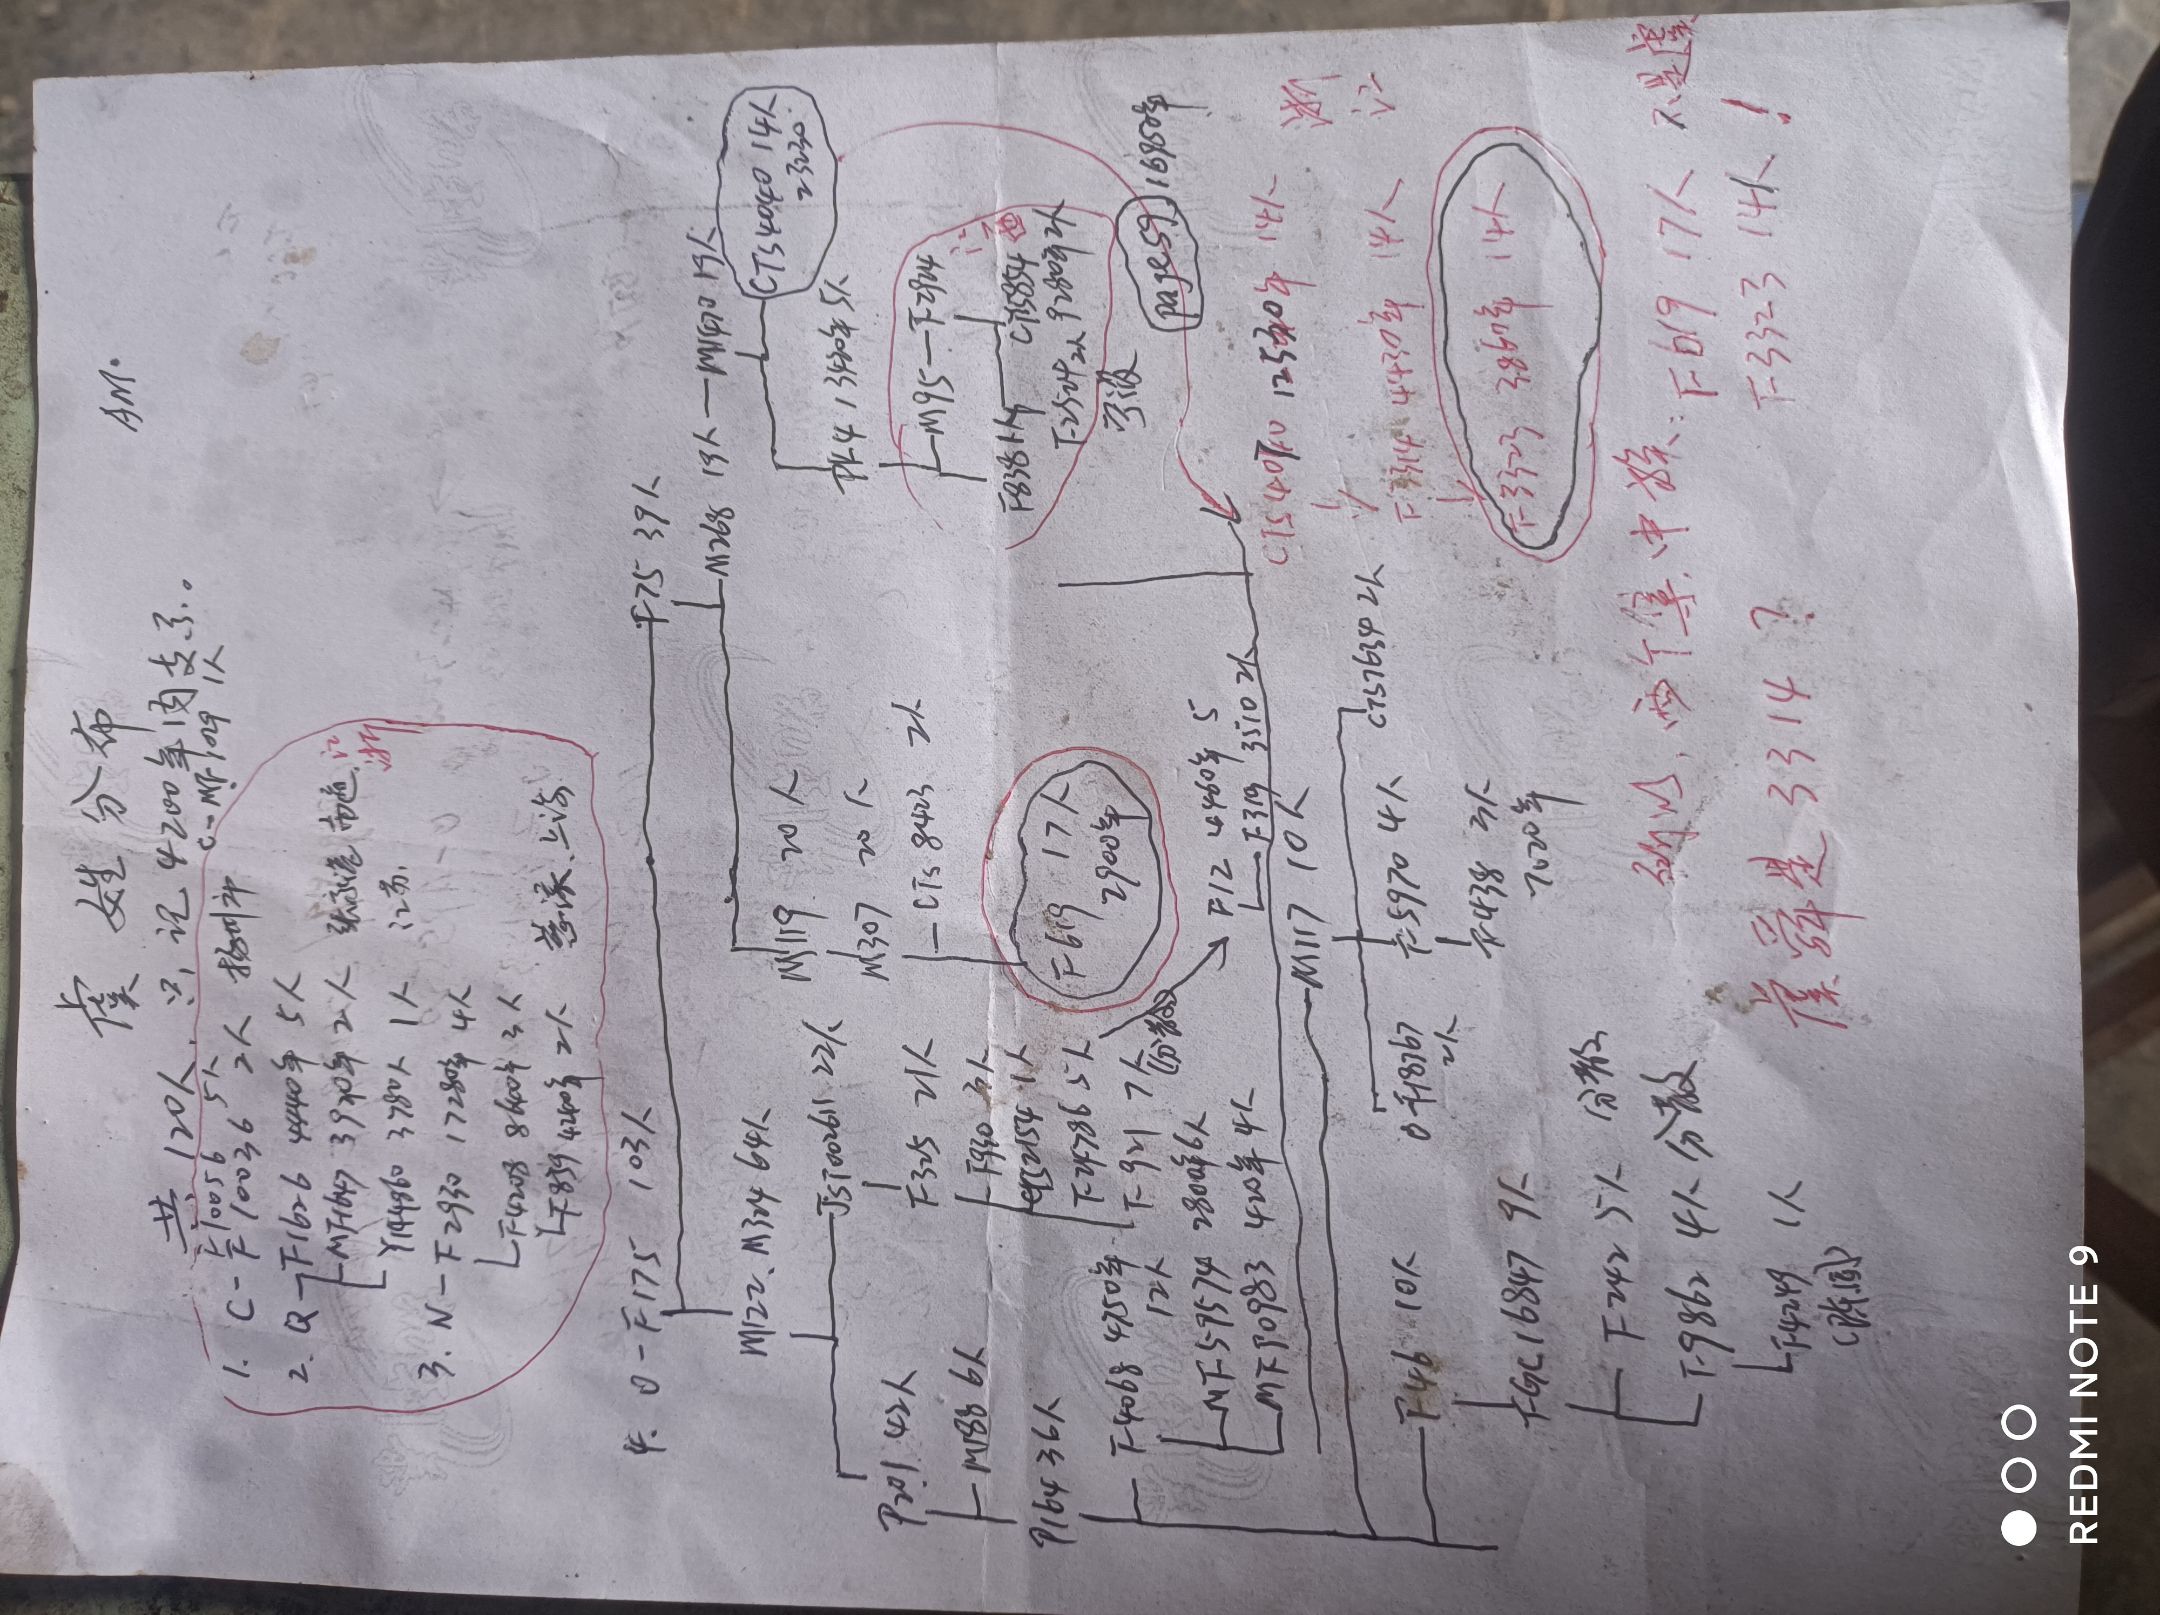 虞 姓 分 布
AM.
共 120人. 只记 4200年内支系..
1. C-F10056 5人
C-MF1029 1人
F10036 2人 杨时祥
2. Q-F1626 4440年 5人
MF1647 3920年 2人 张家港 南通
江浙
Y144860 3780人 1人 江苏.
3. N-F2930 17280年 4人
F4208 8600年 3人
F859 4240年 2人 慈溪.上海
4. O-F175 103人
F75 39人
M122. M324 64人
M268 19人 — M1470 19人
M119 20人
CTS4040 14人
23230.
PK4 13420年 5人
JST002611 22人
M307 20人
P201 42人
CTS8403 2人
M95 — F2924
M188 6人
F325 21人
江西
F619 17人
2900年
F930
F838 1人
CTS5854
F2504 2人 9280年 2人
宁波
P164 36人
F24786 5人
page59 16850年
F4068 4750年
12人
F-921 7人
分散
F12 4460年 5
F319 3510 2人
MF59574 2800年 6人
MF50983 420年 4人
CTS4040 12530年 14人
浙江
M117 10人
F3314 4430年 14人
F46 10人
F18767
2人
F5970 4人
CTS7634 2人
F438 2人
7020年
F3323 3860年 14人
FGC16847 9人
F242 5人 分散
F9862 4人 分散
F4249 1人
(陈值)
所以, 两个集中族: F619 17人 不是虞
F3323 14人!
虞舜是 3314 ?
REDMI NOTE 9